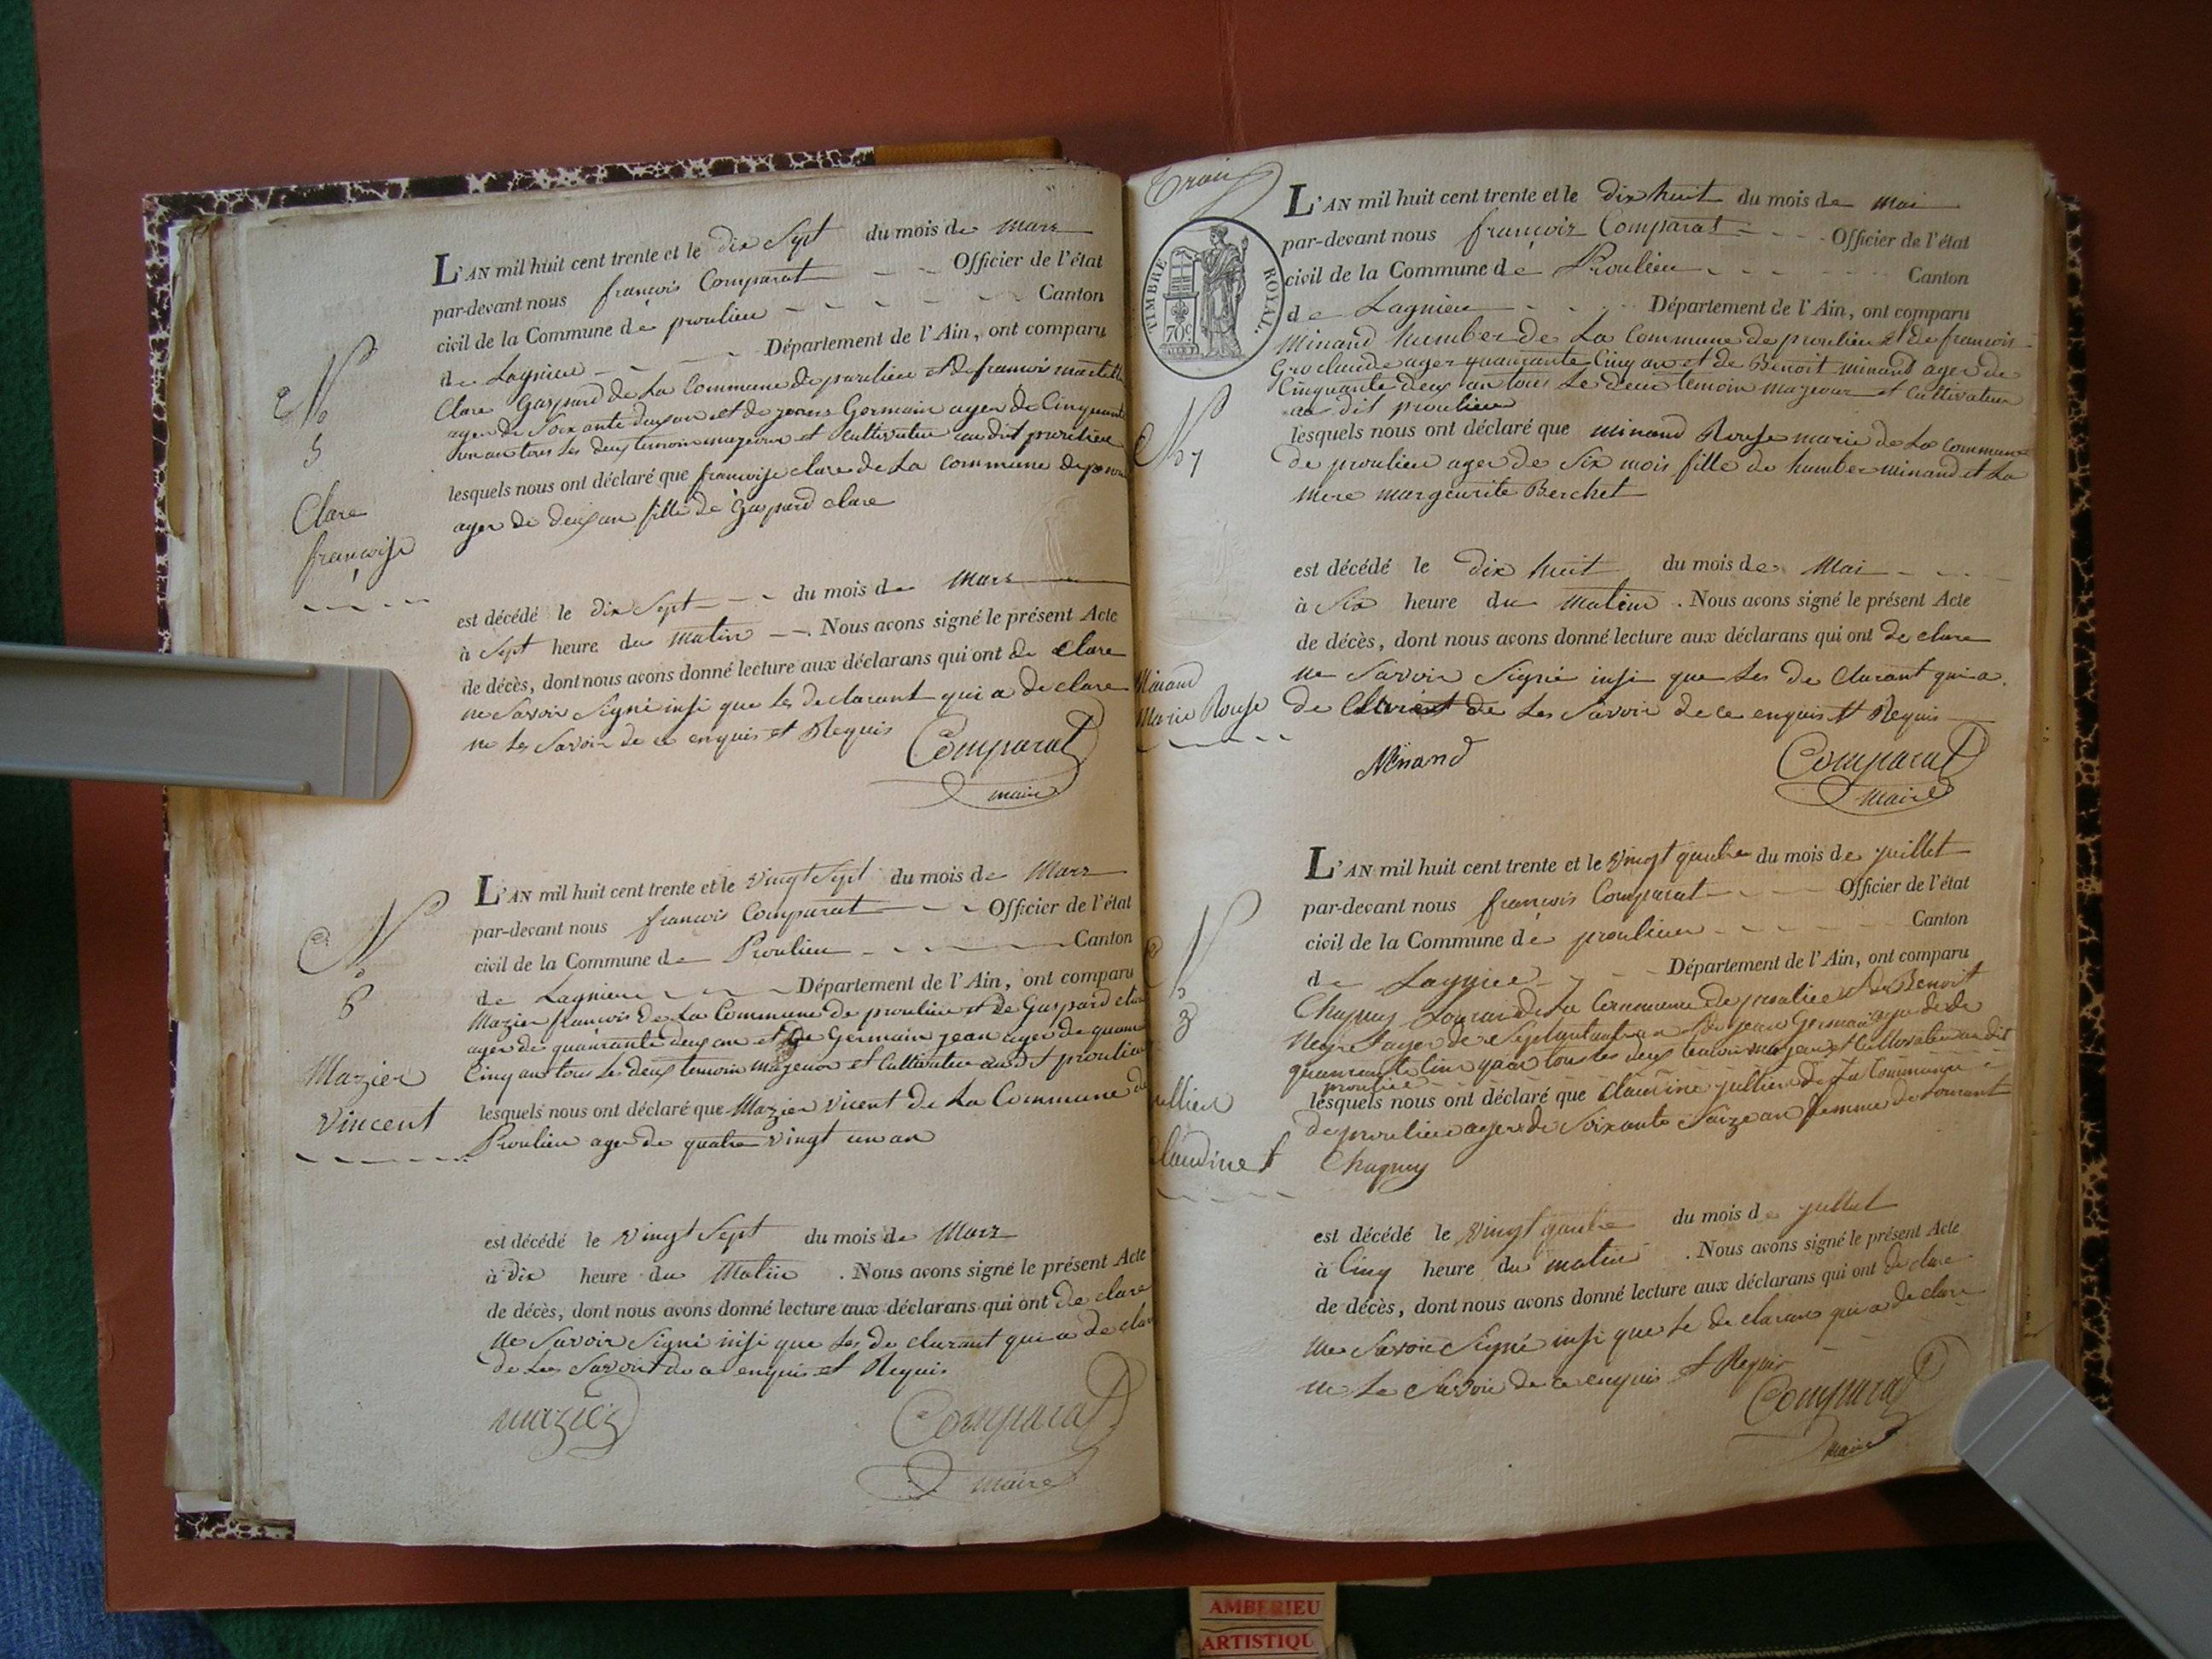 L'AN mil huit cent trente et le dix Sept du mois de Mars
par-devant nous françois Comparat Officier de l'état
civil de la Commune de proulieu Canton
de Lagnieu Département de l'Ain, ont comparu
Clare Gaspard de La Commune de proulieu et de francois
ager de Soixante deux ans et de Germain ager de Cinquante
un an tous Les deux temoin mageour et Cultivateur au dit proulieu
lesquels nous ont déclaré que francoise clare de La commune de
ager de deux an fille de Gaspard clare
N° 5
Clare
francoise
est décédé le dix Sept du mois de Mars
à Sept heure du Matin. Nous avons signé le présent Acte
de décès, dont nous avons donné lecture aux déclarans qui ont de clare
ne Savoir Signé insi que les declarant qui a de clare
ne Les Savoir de ce enquis et Requis
Comparat
maire
L'AN mil huit cent trente et le vingt Sept du mois de Mars
par-devant nous francois Comparat Officier de l'état
civil de la Commune de Proulieu Canton
de Lagnieu Département de l'Ain, ont comparu
Mazier francois de La Commune de proulieu et de Gaspard
ager de quanrante deux an et de Germain jean ager de
Cinq ans tous Les deux temoin mageour et Cultivateur au dit proulieu
lesquels nous ont déclaré que Mazier vicent de La Commune de
Proulieu ager de quatre vingt un an
N°
Mazier
Vincent
est décédé le vingt Sept du mois de Mars
à dix heure du Matin. Nous avons signé le présent Acte
de décès, dont nous avons donné lecture aux déclarans qui ont de clare
ne Savoir Signé insi que Les de clarant qui a de
de Les Savoir de ce enquis et Requis
mazier
Comparat
maire
TIMBRE ROYAL.
70c.
L'AN mil huit cent trente et le dix huit du mois de mai
par-devant nous françois Comparat Officier de l'état
civil de la Commune de Proulieu Canton
de Lagnieu Département de l'Ain, ont comparu
Minand humber de La Commune de proulieu et de francois
Gro claude ager quanrante Cinq an et de Benoit minand ager de
Cinquante deux an tous Le deux temoin mageour et Cultivateur
au dit proulieu
lesquels nous ont déclaré que minand Rouse marie de La commune
de proulieu ager de Six mois fille de humber minand et La
mere margeurite Berchet
N° 7
Minand
Marie Rouse
est décédé le dix huit du mois de Mai
à Six heure du Matin. Nous avons signé le présent Acte
de décès, dont nous avons donné lecture aux déclarans qui ont de clare
ne Savoir Signé insi que Les de Clarant qui a
de de Les Savoir de ce enquis et Requis
Minand
Comparat
Maire
L'AN mil huit cent trente et le vingt quatre du mois de juillet
par-devant nous françois Comparat Officier de l'état
civil de la Commune de proulieu Canton
de Lagnieu Département de l'Ain, ont comparu
Chapuy de La Commune de proulieu et de Benoit
ager de et de jean Germain
tous les deux temoin et Cultivateur au dit
proulieu
lesquels nous ont déclaré que Claudine jullien de La Commune
de proulieu ager de Soixante Saize an femme de
Chapuy
ullien
laudine
est décédé le vingt quatre du mois de juillet
à Cinq heure du matin. Nous avons signé le présent Acte
de décès, dont nous avons donné lecture aux déclarans qui ont de clare
ne Savoir Signé insi que le de clarans qui a de clare
ne Le Savoir de ce enquis et Requis
Comparat
maire
AMBERIEU
ARTISTIQU